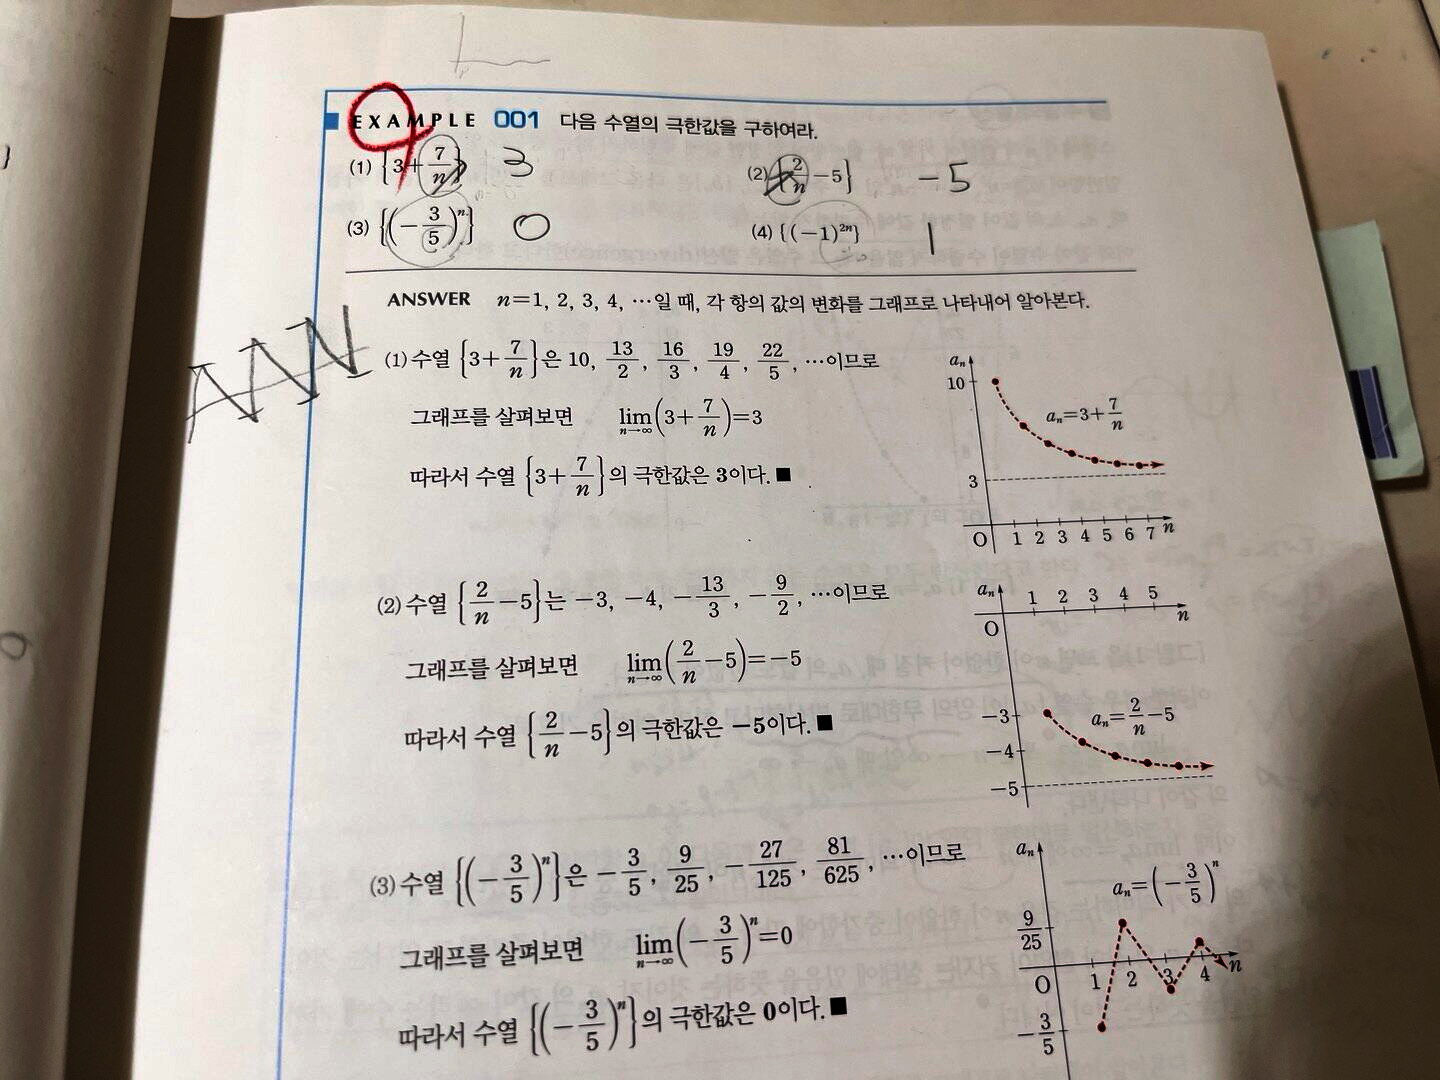 EXAMPLE 001 다음 수열의 극한값을 구하여라.
(1) {3+7/n} 3 (2) {2/n−5} −5
(3) {(−3/5)ⁿ} 0 (4) {(−1)²ⁿ} 1
ANSWER n=1, 2, 3, 4, …일 때, 각 항의 값의 변화를 그래프로 나타내어 알아본다.
(1) 수열 {3+7/n}은 10, 13/2, 16/3, 19/4, 22/5, …이므로
그래프를 살펴보면 lim n→∞ (3+7/n)=3
따라서 수열 {3+7/n}의 극한값은 3이다. ■
aₙ
10
aₙ=3+7/n
3
O 1 2 3 4 5 6 7 n
(2) 수열 {2/n−5}는 −3, −4, −13/3, −9/2, …이므로
그래프를 살펴보면 lim n→∞ (2/n−5)=−5
따라서 수열 {2/n−5}의 극한값은 −5이다. ■
aₙ 1 2 3 4 5
O n
−3 aₙ=2/n−5
−4
−5
(3) 수열 {(−3/5)ⁿ}은 −3/5, 9/25, −27/125, 81/625, …이므로
그래프를 살펴보면 lim n→∞ (−3/5)ⁿ=0
따라서 수열 {(−3/5)ⁿ}의 극한값은 0이다. ■
aₙ
aₙ=(−3/5)ⁿ
9/25
O 1 2 3 4 n
−3/5